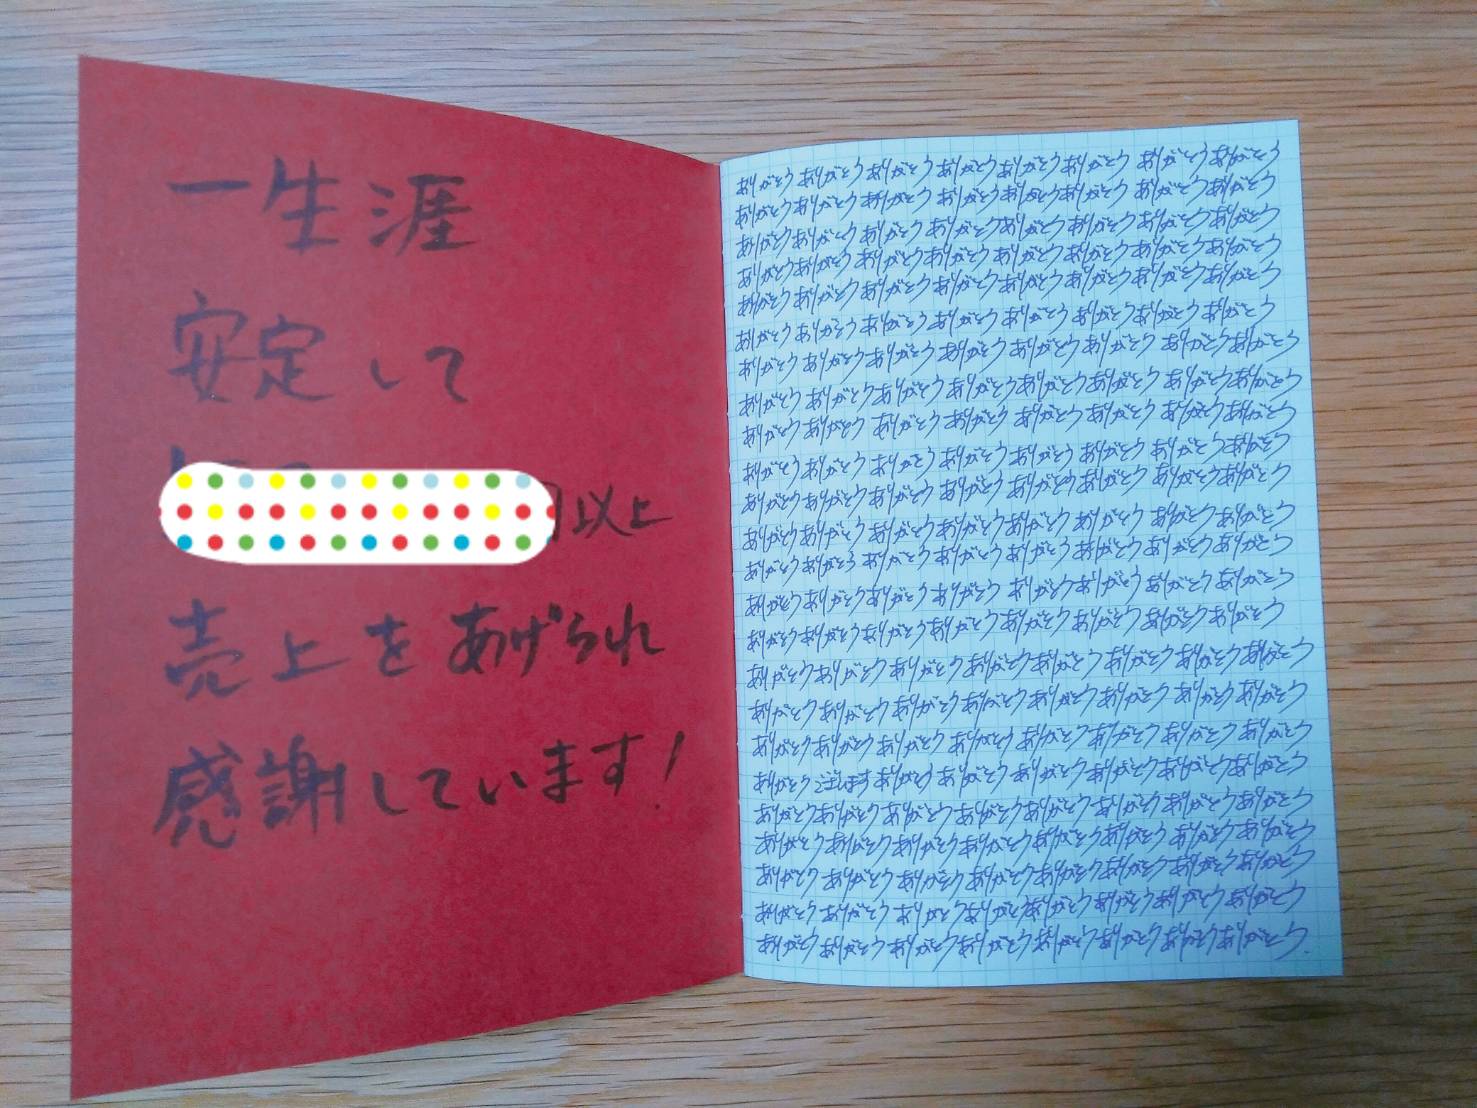 一生涯
安定して
以上
売上をあげられ
感謝しています!
ありがとう ありがとう ありがとう ありがとう ありがとう ありがとう ありがとう ありがとう
ありがとう ありがとう ありがとう ありがとう ありがとう ありがとう ありがとう ありがとう
ありがとう ありがとう ありがとう ありがとう ありがとう ありがとう ありがとう ありがとう
ありがとう ありがとう ありがとう ありがとう ありがとう ありがとう ありがとう ありがとう
ありがとう ありがとう ありがとう ありがとう ありがとう ありがとう ありがとう ありがとう
ありがとう ありがとう ありがとう ありがとう ありがとう ありがとう ありがとう ありがとう
ありがとう ありがとう ありがとう ありがとう ありがとう ありがとう ありがとう ありがとう
ありがとう ありがとう ありがとう ありがとう ありがとう ありがとう ありがとう ありがとう
ありがとう ありがとう ありがとう ありがとう ありがとう ありがとう ありがとう ありがとう
ありがとう ありがとう ありがとう ありがとう ありがとう ありがとう ありがとう ありがとう
ありがとう ありがとう ありがとう ありがとう ありがとう ありがとう ありがとう ありがとう
ありがとう ありがとう ありがとう ありがとう ありがとう ありがとう ありがとう ありがとう
ありがとう ありがとう ありがとう ありがとう ありがとう ありがとう ありがとう ありがとう
ありがとう ありがとう ありがとう ありがとう ありがとう ありがとう ありがとう ありがとう
ありがとう ありがとう ありがとう ありがとう ありがとう ありがとう ありがとう ありがとう
ありがとう ありがとう ありがとう ありがとう ありがとう ありがとう ありがとう ありがとう
ありがとう ありがとう ありがとう ありがとう ありがとう ありがとう ありがとう ありがとう
ありがとう ありがとう ありがとう ありがとう ありがとう ありがとう ありがとう ありがとう
ありがとう ございます ありがとう ありがとう ありがとう ありがとう ありがとう ありがとう
ありがとう ありがとう ありがとう ありがとう ありがとう ありがとう ありがとう ありがとう
ありがとう ありがとう ありがとう ありがとう ありがとう ありがとう ありがとう ありがとう
ありがとう ありがとう ありがとう ありがとう ありがとう ありがとう ありがとう ありがとう
ありがとう ありがとう ありがとう ありがとう ありがとう ありがとう ありがとう ありがとう
ありがとう ありがとう ありがとう ありがとう ありがとう ありがとう ありがとう ありがとう.